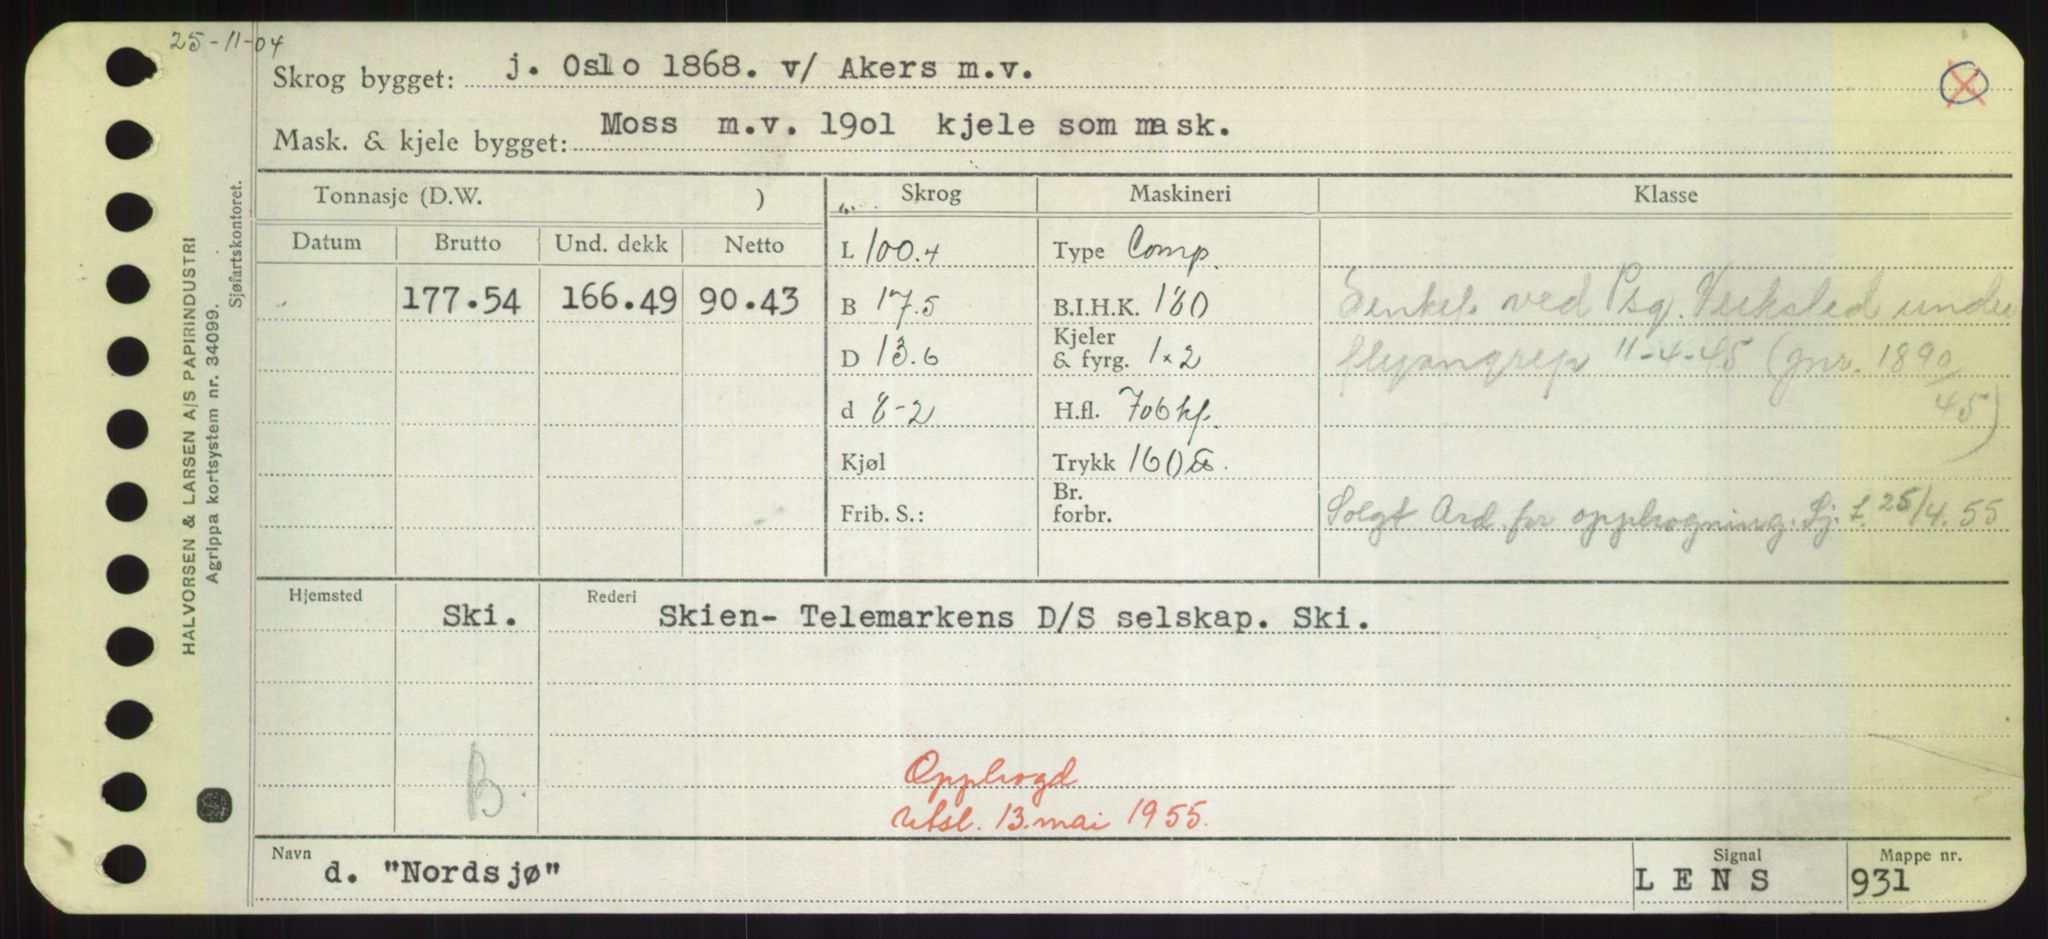 25-11-04
Skrog bygget: j. Oslo 1868. v/ Akers m.v.
Mask. & kjele bygget: Moss m.v. 19ol kjele som mask.
HALVORSEN & LARSEN A/S PAPIRINDUSTRI
Agrippa kortsystem nr. 34099.
Sjøfartskontoret.
Tonnasje (D.W. ) Skrog Maskineri Klasse
Datum Brutto Und. dekk Netto
L 100.4 Type Comp.
177.54 166.49 90.43 B 17.5 B.I.H.K. 180 Senket ved Psg. Verksted under
D 13.6 Kjeler & fyrg. 1x2 flyangrep 11-4-45 (jnr. 1890/45)
d 8-2 H.fl. 706 kf.
Kjøl Trykk 160
Frib. S.: Br. forbr. Solgt Ard for opphogning. Sj. f. 25/4.55
Hjemsted Ski. Rederi Skien- Telemarkens D/S selskap. Ski.
B.
Opphogd
Utsl. 13. mai 1955.
Navn d. "Nordsjø" Signal L E N S Mappe nr. 931